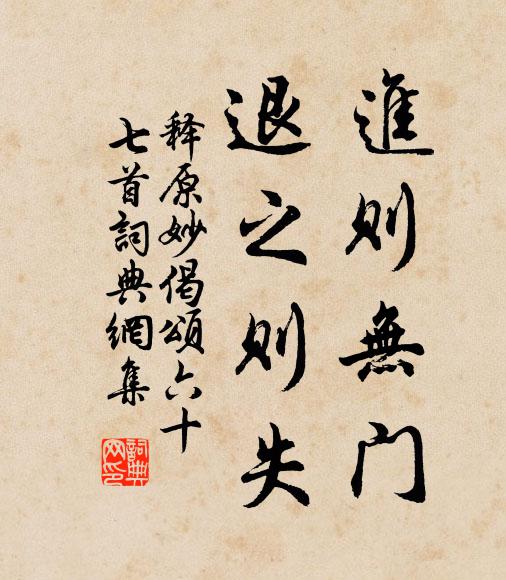 進則無门
退之则失
释原妙偈頌六十
七首詞典網集
詞典网印